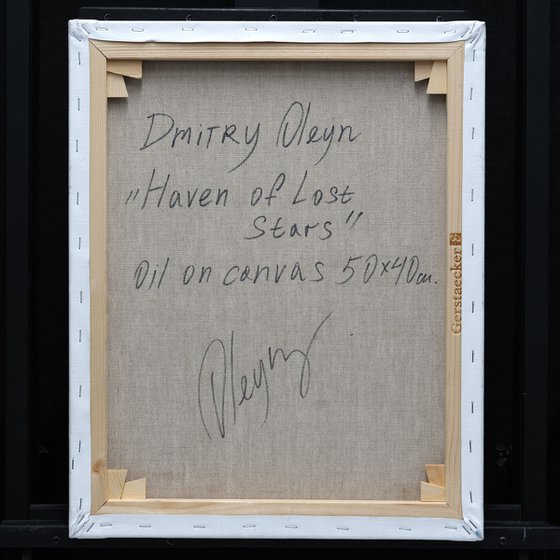 Dmitry Oleyn
"Haven of Lost
Stars"
Oil on canvas 50x40cm.
Oleyn
Gerstaecker